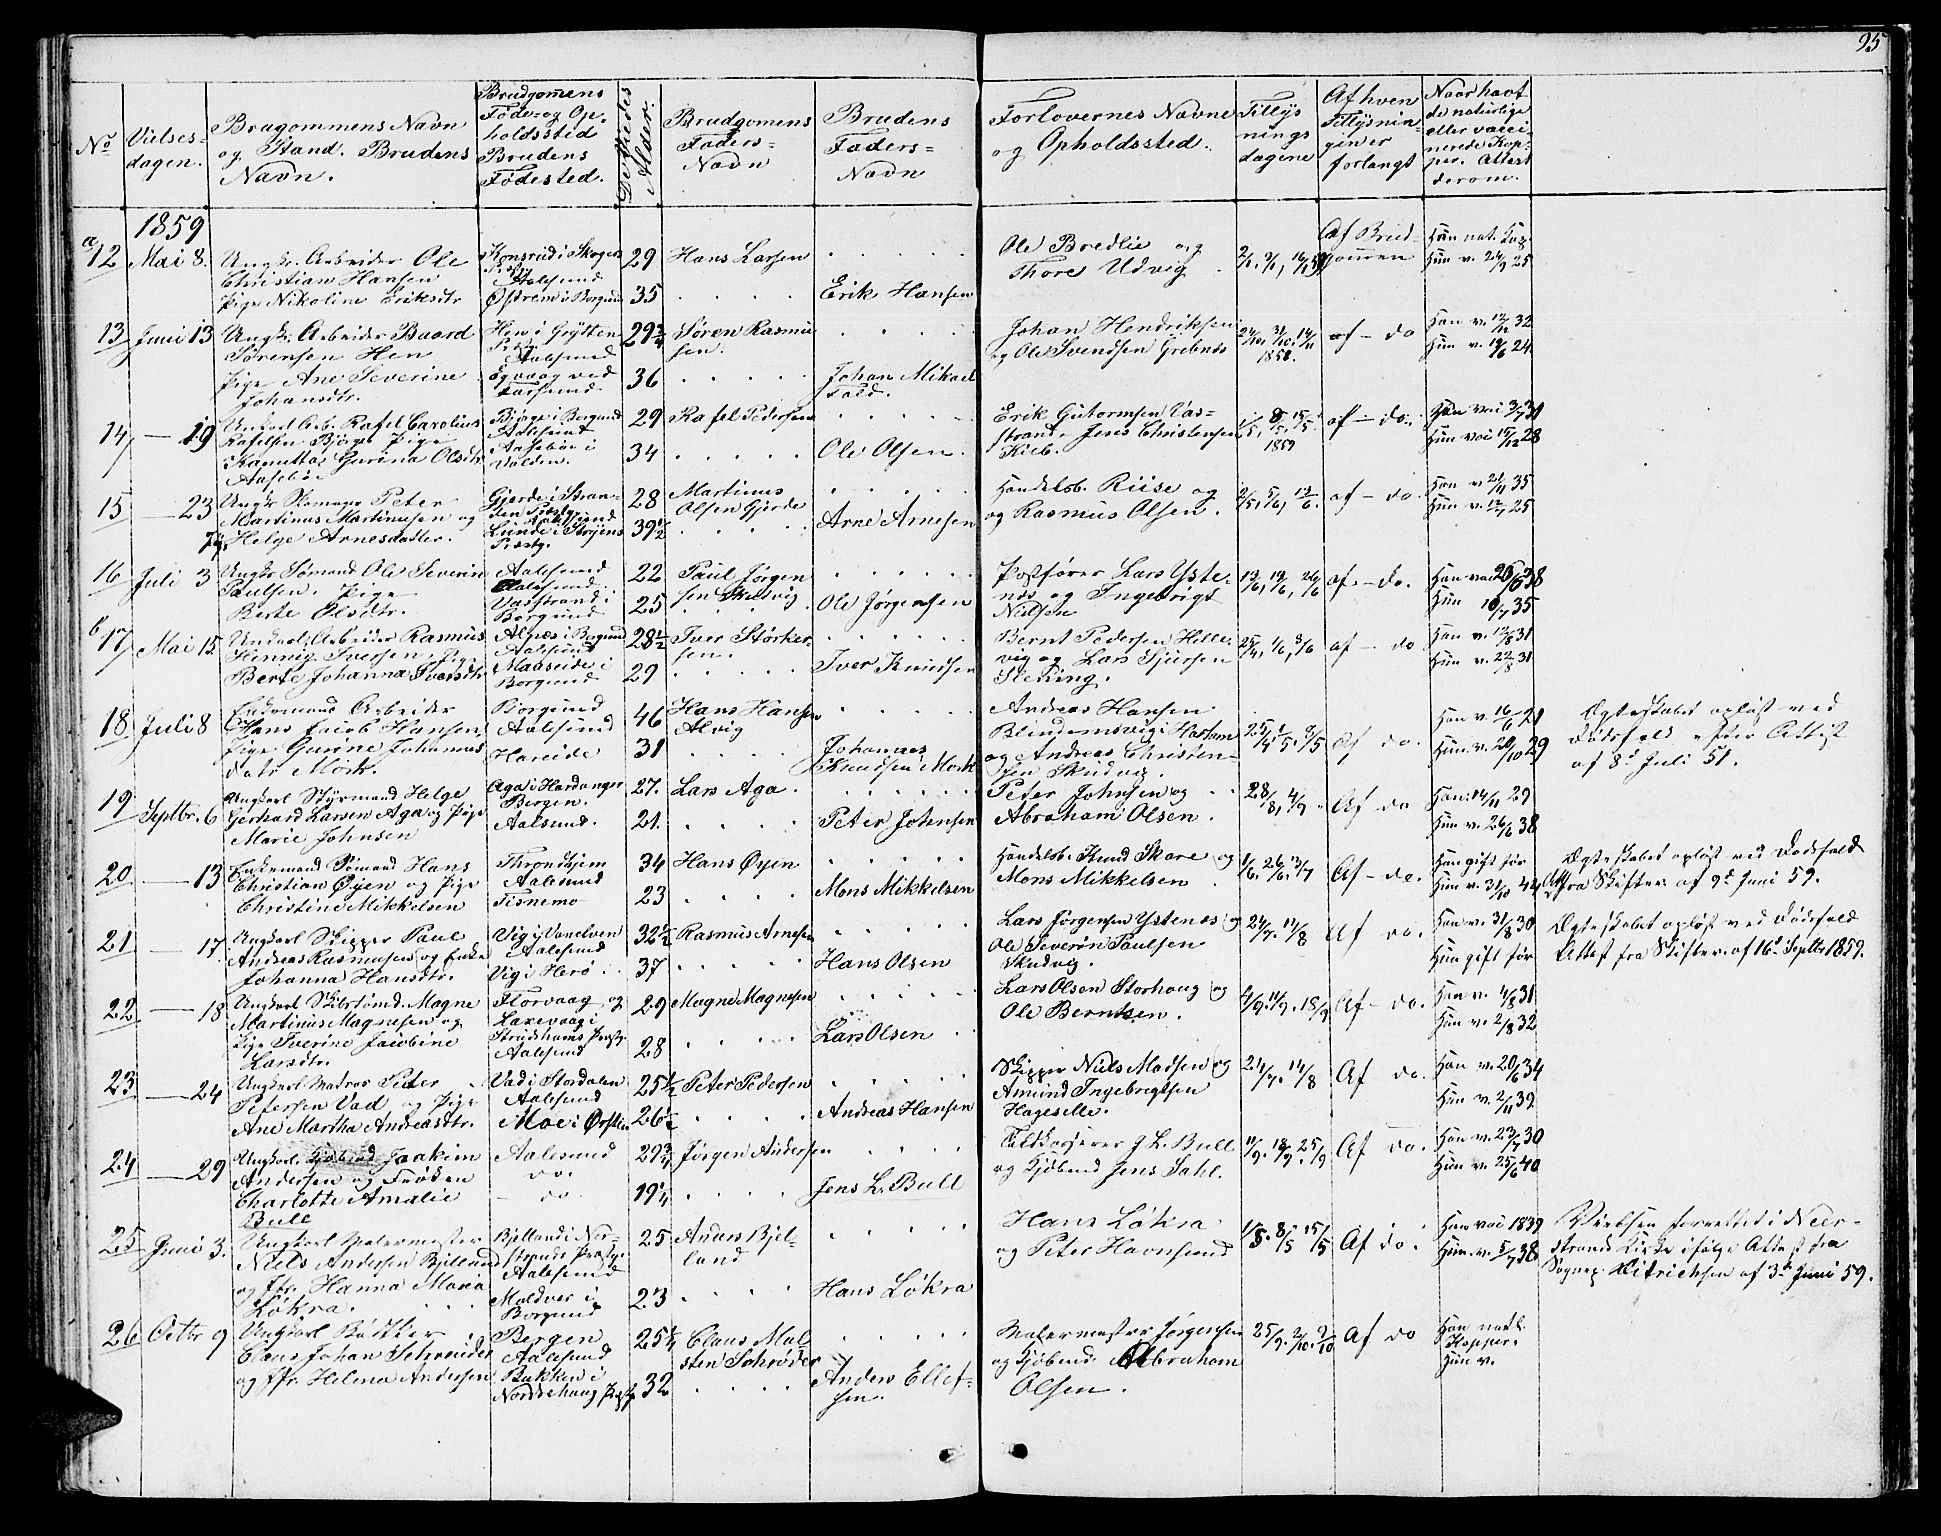 95
No
Vielses-
dagen.
Brugommens Navn
og Stand. Brudens
Navn.
Brudgomens
Føde- og Op-
holdssted
Brudens
Fødested.
Dettbedes
Alder.
Brudgomens
Faders-
Navn
Brudens
Faders-
Navn
Forlovernes Navne
og Opholdssted.
Tillys
nings
dagene
Af hven
Tillysnin-
gen er
forlangt
Naar havt
de naturlige
eller vacci-
nerede Kop-
per. Attest
derom.
1859
a
12 Mai 8.
Ungk. Arbeider Ole
Christian Hansen
Pige Nikoline Eriksdtr
Konsrud i Skoger
Aalesund
Østrem i Borgund
29
35
Hans Larsen
Erik Hansen
Ole Bredlie og
Thore Udvig
Af Brud-
gomen
Han nat. Kop.
Hun v. 24/9 25
13 Juni 13
Ungk. Arbeider Baard
Sørensen Hen
Pige Ane Severine
Johansdtr.
Hen i Grytten
Aalesund
Farsund
29 3/4
36
Søren Rasmu
sen.
Johan Mikael
Fold.
Johan Hendriksen
og Ole Svendsen Grebnes
1858.
af - do
Han v. 32
Hun v. 24
14 — 19
Ungkarl Arb. Rafel Carolius
Rafelsen Bjørge Pige
Kanutta Gurina Olsdtr
Aasebøe
Bjørge i Borgund
Aalesund
Aasebøe i
Volden.
29
34
Rafel Pedersen
Ole Olsen.
Erik Gutormsen Vas-
strand, Jens Christensen
1/5, 8/5, 15/5.
1859
af - do.
Han vai 31
Hun vai 15/12 28
15 — 23
Ungk. Peter
Martinus Martinussen og
Pige Helge Arnesdatter.
Gjerde i Stran-
den Præstg.
Aalesund
28
39 1/2
Martinus
Olsen Gjerde
Arne Arnesen
Handelsb. Riise og
og Rasmus Olsen.
af - do.
Han v. 35
Hun v. 25
16 Juli 3
Ungkr Sømand Ole Severin
Paulsen. Pige
Berte Olsdtr.
Aalesund
Aalesund.
Vasstrand i
Borgund
22
25
Paul Jørgen
sen Skudvig
Ole Jørgensen
Postfører Lars Yste-
nes og Ingebrigt
Nielsen
12/6, 19/6, 26/6
af - do.
Han vai 38
Hun 35
b
17 Mai 15.
Ungkarl, Arbeider Rasmus
Henrig Iversen, Pige
Berte Johanna Iversdtr
Alnæs i Borgund
Aalesund
Borgund
28 1/2
29
Iver Størker-
sen.
Iver Knudsen
Bernt Pedersen Hille-
vig og Lars Sjursen
af - do
Han v. 31
Hun v. 22/8 31
18 Juli 8
Enkemand Arbeider
Hans Jacob Hansen
Pige Gurine Johannes
datr Mork.
Borgund
Aalesund
Hareide
46
31
Hans Hansen
Alvig
Johannes
Knudsen Mork
Andreas Hansen
Blindemsvig i Haram
og Andreas Christen-
sen Skudvig.
25/4 1/5. 8/5
Af do.
Han v. 16/6 21
Hun v. 20/10 29
Ægteskabet opløst ved
Dødsfald efter Attest
af 8d Juli 51.
19 Septbr. 6
Ungkarl Styrmand Helge
Gerhard Larsen Aga og Pige
Marie Johnsen
Aga i Hardanger
Bergen.
Aalesund.
27.
21.
Lars Aga.
Peter Johnsen
Peter Johnsen og
Abraham Olsen.
28/8, 4/9
Af do
Han: 14/11 29
Hun v. 26/6 38
20 — 13
Enkemand Sømand Hans
Christian Øyen og Pige
Christine Mikkelsen
Throndhjem
Aalesund
34
23
Hans Øyen
Mons Mikkelsen
Handelsb. Knud Skare og
Mons Mikkelsen
Af - do.
Han gift før
Hun v. 31/10 42
Ægteskabet opløst ved Dødsfald
Att. fra Skifter. af 9d Juni 59.
21 — 17.
Ungkarl Skipper Paul
Andreas Rasmusen og Enke
Johanna Hansdtr.
Vig i Vanelven
Aalesund
Vig i Herø
32 1/2
37
Rasmus Arnesen
Hans Olsen
Lars Jørgensen Ystenes og
Ole Severin Paulsen
Skudvig.
Af do.
Han v. 31/8 30
Hun gift før
Ægteskabet opløst ved Dødsfald
Attest fra Skifter. af 16d Septbr 1859.
22 — 18
Ungkarl Skibstømd. Magne
Martinus Magnesen og
Pige Iverine Jacobine
Larsdtr.
Florvaag og
Laxevaag i
Aalesund
29
28
Magne Magnesen
Lars Olsen
Lars Olsen Storhoug og
Ole Berntsen.
4/9. 11/9. 18/9
Af - do.
Han v. 4/8 31
Hun v. 2/8 32
23 — 24
Ungkarl Matros Peter
Petersen Vad og Pige
Ane Martha Andreasdtr.
Vad i Stordalen
Aalesund
Moe i Ørsten
25 1/2
26 1/2
Peter Pedersen
Andreas Hansen
Skipper Niels Madsen og
Amund Ingebregtsen
Hageselle.
24/7. 14/8
Af do.
Han v. 20/6 34
Hun v. 2/11 39.
24 — 29
Ungkarl. Kjøbmd Joakim
Andersen og Frøken
Charlotte Amalie
Bull
Aalesund
do.
do
29 3/4
19 1/4
Jørgen Andersen
Jens L. Bull
J. L. Bull
og Kjøbmd Jens Dahl.
11/9. 18/9. 25/9
Af do.
Han v. 23/7 30
Hun v. 25/6 40
25 Juni 3.
Ungkarl Malermester
Niels Andersen Bjelland
og Jfr. Hanna Maria
Løkra.
Bjelland i Ner-
strands Præstg.
Aalesund
Moldver i
Borgund
25
23
Anders Bjel-
land
Hans Løkra
Hans Løkra
og Peter Havnsund
1/5. 8/5 15/5
Af do.
Han vai 1839
Hun v. 5/7 38
Vielsen forrettet i Neer-
strands Kirke ifølge Attest fra
Sognep. Ditrichsen af 3d Juni 59.
26 Octbr 9
Ungkarl Bødker
Claus Johan Schreuder
og Jfr. Helena Andersen
Bergen
Aalesund
Bakken i
25 1/2
32
Claus Mal-
sten Schrøder
Anders Ellef-
sen.
Malermester Jørgensen
og Kjøbmd. Abraham
Olsen.
25/9. 2/10. 9/10
Af do
Han natl.
Kopper.
Hun v.